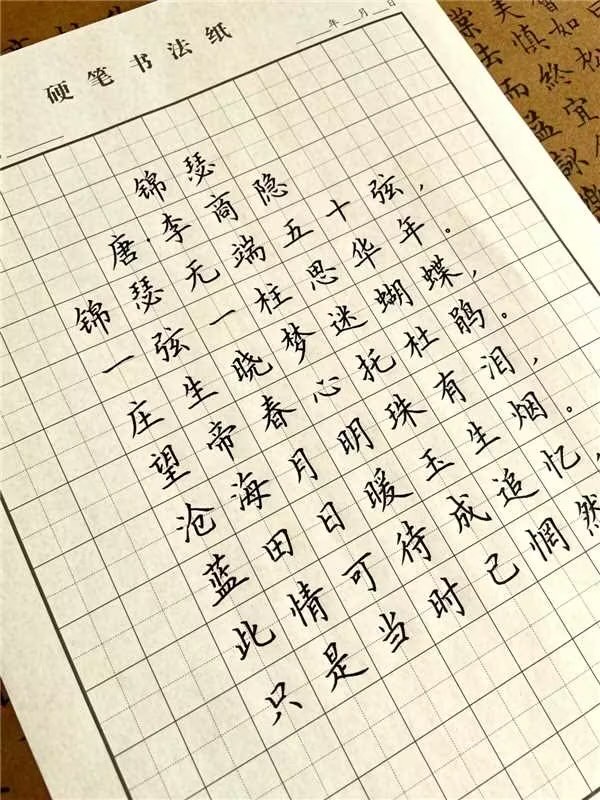 硬笔书法纸
年 月 日
锦瑟
唐·李商隐
锦瑟无端五十弦，
一弦一柱思华年。
庄生晓梦迷蝴蝶，
望帝春心托杜鹃。
沧海月明珠有泪，
蓝田日暖玉生烟。
此情可待成追忆，
只是当时已惘然